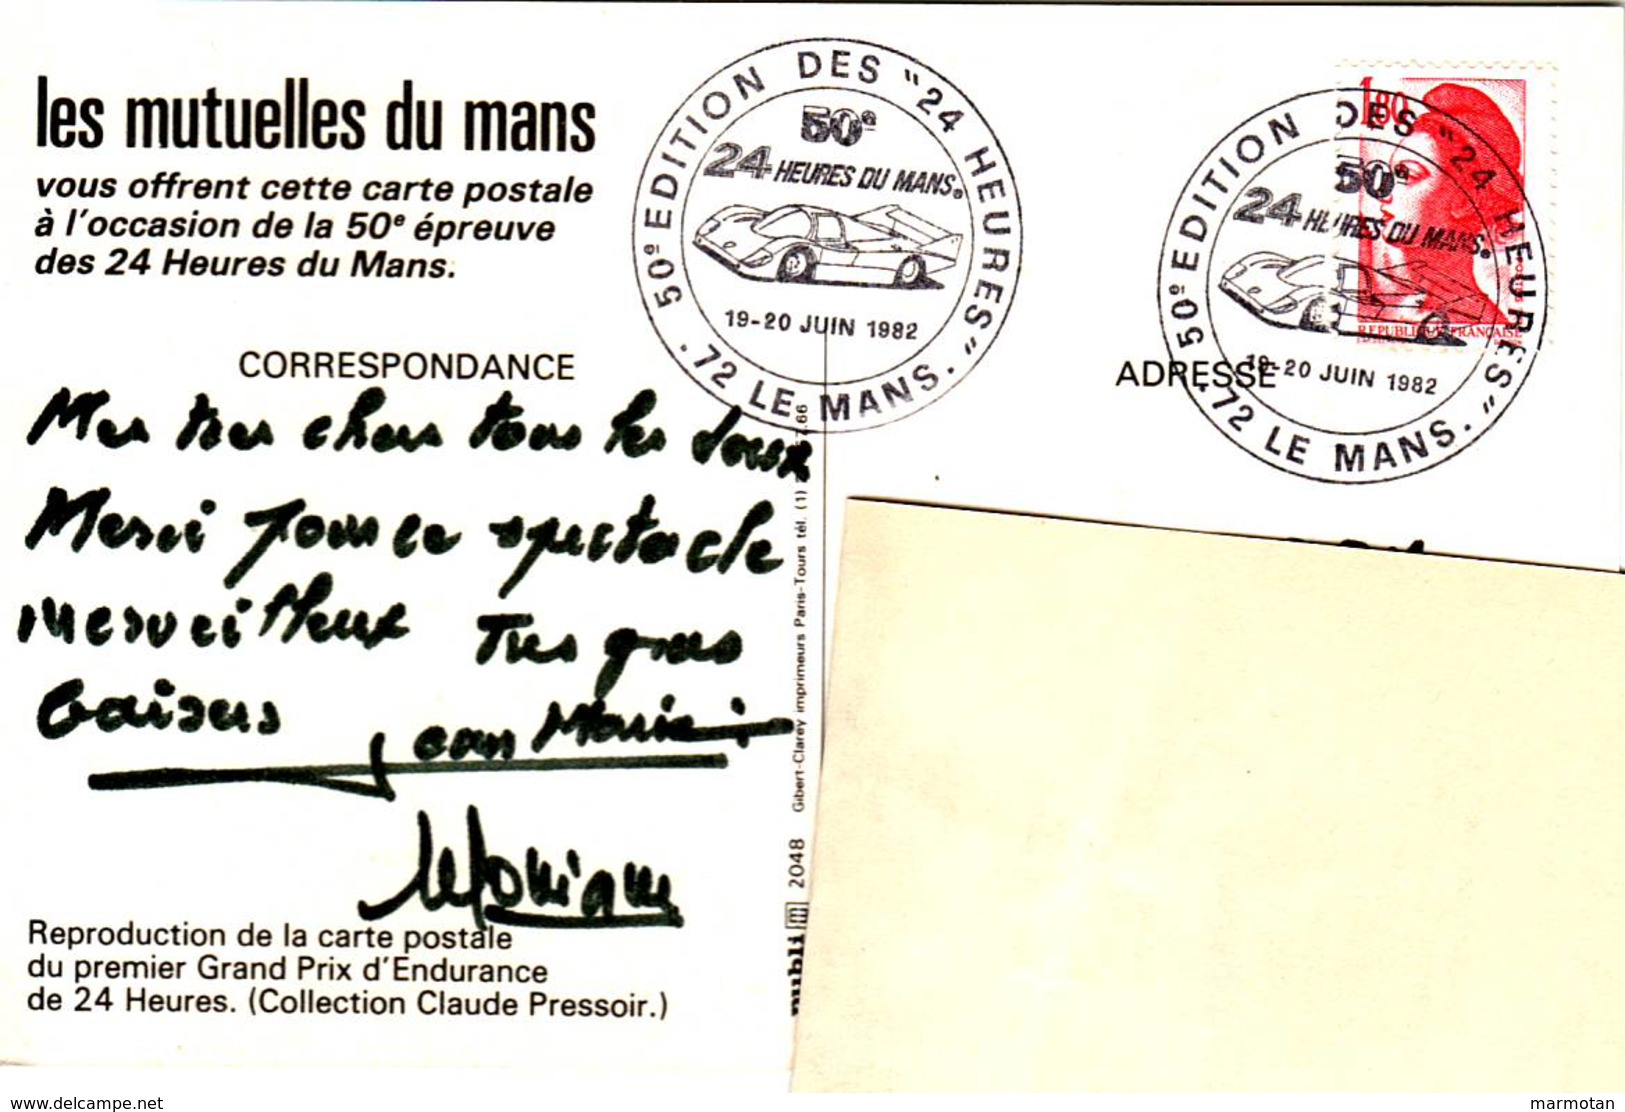 les mutuelles du mans
vous offrent cette carte postale
à l'occasion de la 50e épreuve
des 24 Heures du Mans.
50e EDITION DES "24 HEURES"
50e
24 HEURES DU MANS.
19-20 JUIN 1982
· 72 LE MANS.
1,80
REPUBLIQUE FRANÇAISE
50e EDITION DES "24 HEURES"
50e
24 HEURES DU MANS.
19-20 JUIN 1982
72 LE MANS.
CORRESPONDANCE
ADRESSE
Mes tres chers tous les deux
Merci pour ce spectacle
merveilleux Tres gros
baisers Jean Marie
Monique
Reproduction de la carte postale
du premier Grand Prix d'Endurance
de 24 Heures. (Collection Claude Pressoir.)
publi m 2048 Gibert-Clarey imprimeurs Paris-Tours tél. (1)
www.delcampe.net
marmotan